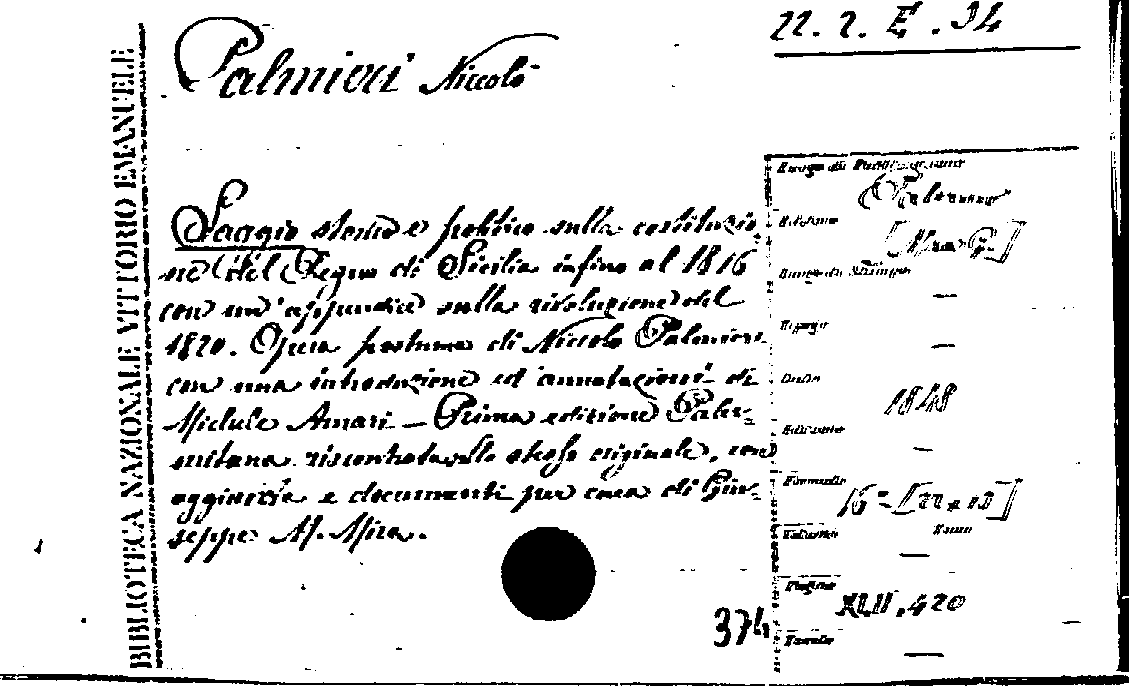 22. 2. E. 34
Palmieri Niccolò
BIBLIOTECA NAZIONALE VITTORIO EMANUELE
Saggio storico e politico sulla costituzio-
ne del Regno di Sicilia infino al 1816
con un'appendice sulla rivoluzione del
1820. Opera postuma di Niccolò Palmieri
con una introduzione ed annotazioni di
Michele Amari — Prima edizione Paler-
mitana riscontrata sullo stesso originale, con
aggiunte e documenti per cura di Giu-
seppe M. Mira.
Luogo di Pubblicazione
Palermo
Editore
[Mira G.]
Luogo di Stampa
—
—
Data
1848
Edizione
—
Formato
16º
Volume
—
Pagine
XLII, 420
Tavole
—
374